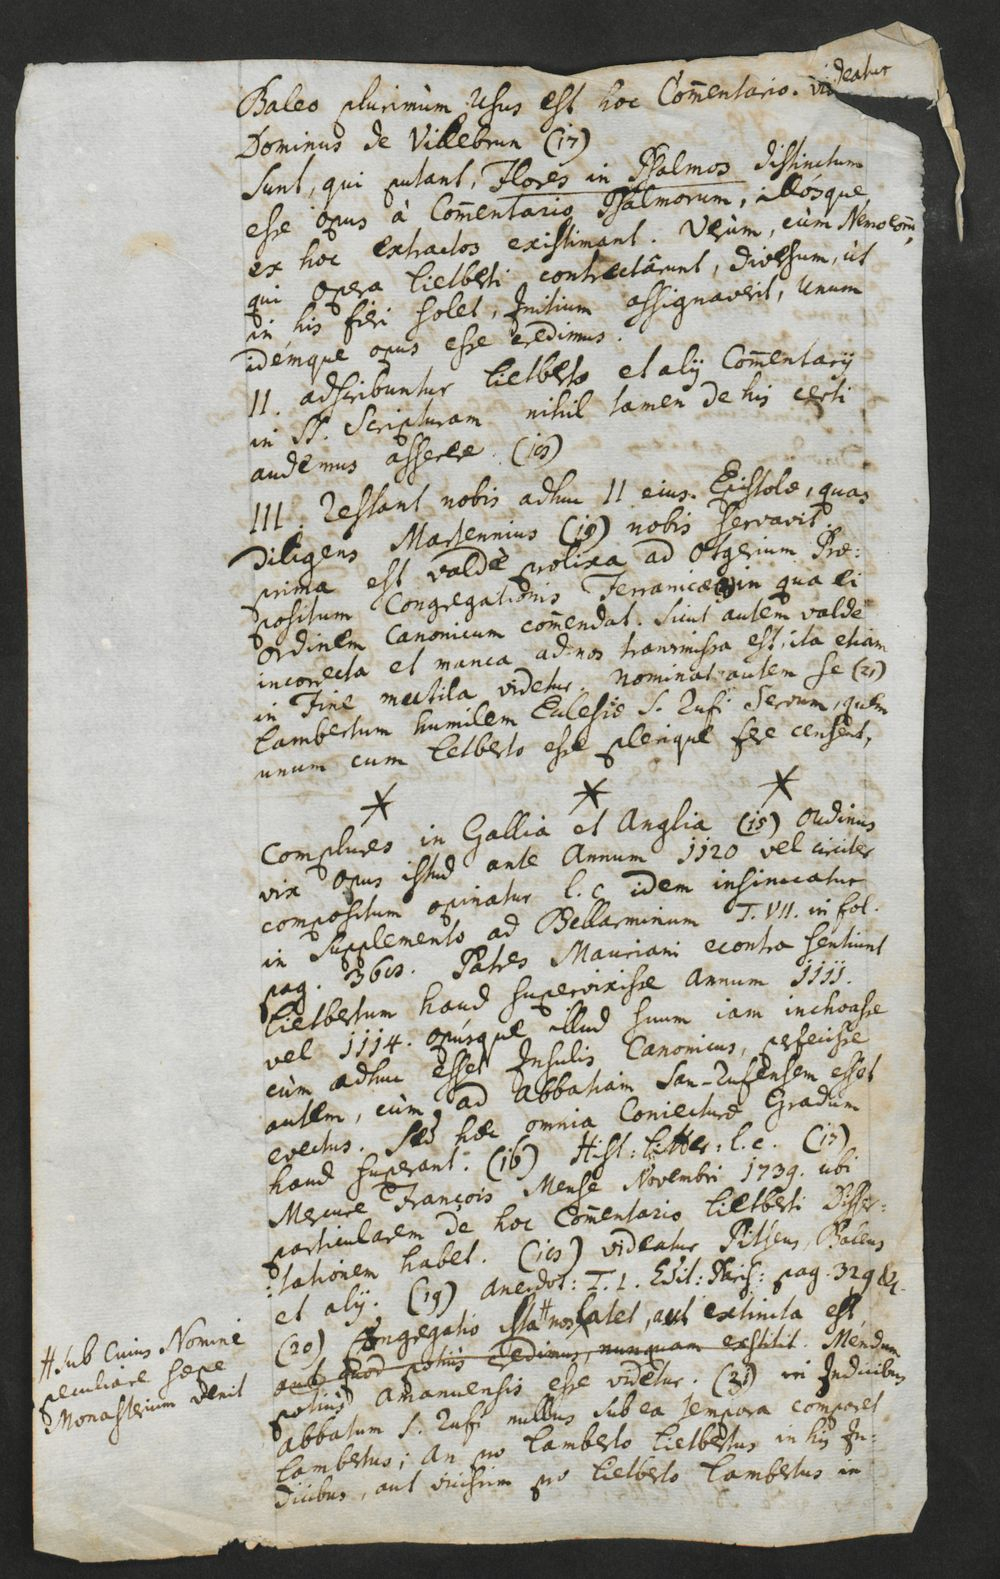 Baleo plurimùm Usus est hoc Com̄entario. videatur
Dominus de Villebrun (17)
Sunt, qui putant, Flores in Psalmos distinctum
esse opus à Com̄entario Psalmorum, illósque
ex hoc extractos existimant. Verùm, cùm Nemo eorū,
qui opera Lietberti contrectârunt, diversum, ùt
in his fieri solet, Initium assignaverit, Unum
idémque opus esse credimus.
II. adscribuntur Lietberto et alij Com̄entarij
in SS. Scripturam nihil tamen de his certi
audemus asserere. (18)
III. Restant nobis adhuc II eius Epistolæ, quas
Diligens Martennius (19) nobis servavit.
prima est valdè prolixa ad Otgerium Præ:
positum Congregationis Ferranicæ (20) in qua ei
Ordinem Canonicum com̄endat. Sicut autem valde
incorrecta et manca ad nos transmissa est, ita etiam
in Fine mutila videtur. Nominat autem se (21)
Lambertum humilem Eclesiæ S. Rufi Servum, quem
unum cum Letberto esse plerique fere censent,
* * *
Complures in Gallia et Anglia (15) Oudinus
vix opus istud ante Annum 1120 vel circiter
compositum opinatur l. c. idem insinuatur
in Supplemento ad Bellarminum T. VII. in fol.
pag. 368. Patres Mauriani econtra sentiunt
Lietbertum haud supervixisse Annum 1111.
vel 1114. opúsque illud suum iam inchoasse
cùm adhuc esset Insulis Canonicus, perfecisse
autem, cùm ad Abbatiam San-Rufensem esset
evectus. Sed hæc omnia Coniecturæ Gradum
haud superant. (16) Hist: Litter: l. c. (17)
Mercure François Mense Novembri 1739. ubi
particularem de hoc Com̄entario Lietberti Disser:
:tationem habet. (18) videatur Pitseus, Baleus
et alij. (19) Anecdot: T. I. Edit: Paris: pag. 329 &c.
(20) Congregatio ista # nos latet, aut extincta est,
aut quod potiùs credimus, nunquam exstitit. Mendum
potiùs Amanuensis esse videtur. (21) in Indicibus
Abbatum S. Rufi nullus sub ea tempora comparet
Lambertus; An pro Lamberto Lietbertus in his In:
dicibus, aut vicissim pro Lietberto Lambertus in
# sub Cuius Nomine
peculiare sæpe
Monasterium venit